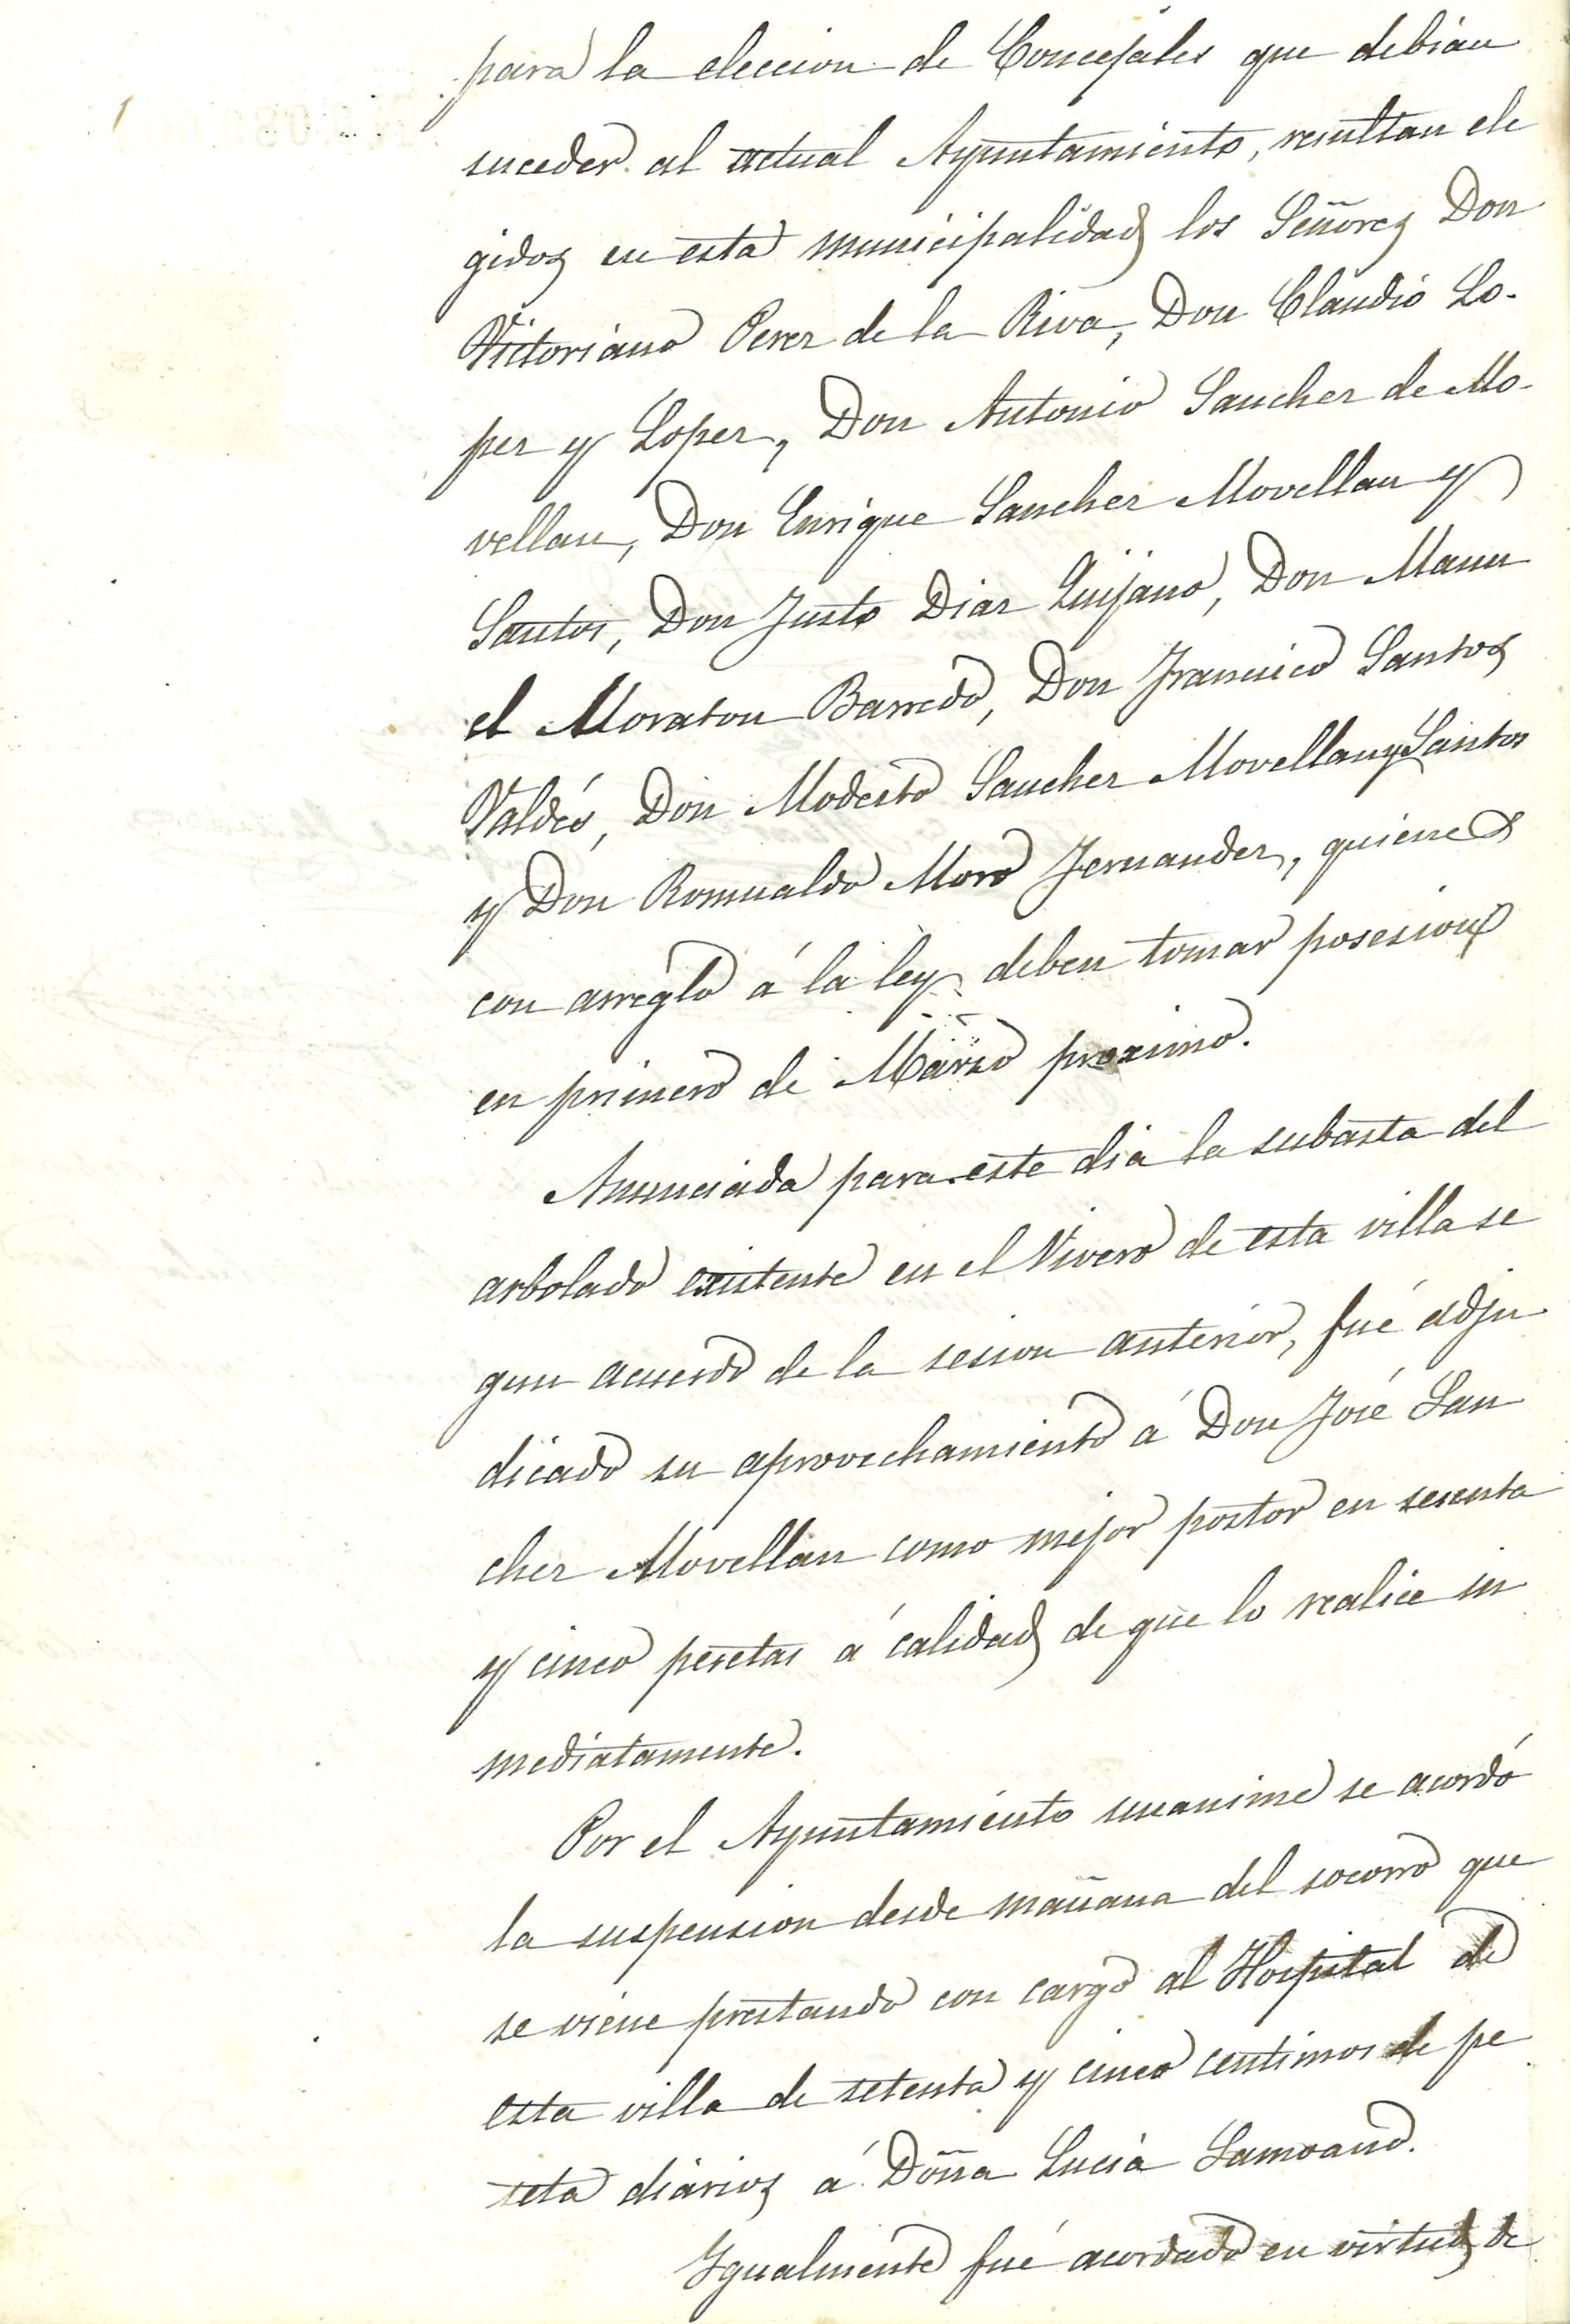 para la eleccion de Concejales que debian
suceder al actual Ayuntamiento, resultan ele
gidos en esta municipalidad los Señores Don
Victoriano Perez de la Riva, Don Claudio Lo-
pez y Lopez, Don Antonio Sanchez de Mo-
vellan, Don Enrique Sanchez Movellan y
Santos, Don Justo Diaz Quijano, Don Manu
el Moraton Barredo, Don Francisco Santos
Valdés, Don Modesto Sanchez Movellan y Santos
y Don Romualdo Moro Fernandez, quienes
con arreglo á la ley deben tomar posesion
en primero de Marzo proximo.
Anunciada para este dia la subasta del
arbolado existente en el Vivero de esta villa se
gun acuerdo de la sesion anterior, fué adju
dicado su aprovechamiento á Don José San
chez Movellan como mejor postor en sesenta
y cinco pesetas á calidad de que lo realice in
mediatamente.
Por el Ayuntamiento unanime se acordó
la suspension desde mañana del socorro que
se viene prestando con cargo al Hospital de
esta villa de setenta y cinco centimos de pe
seta diarios á Doña Lucia
Igualmente fué acordado en virtud de